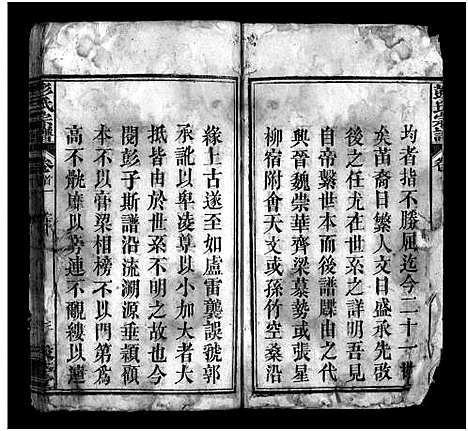 均者指不勝風迄今二十一
矣苗裔日繁人文日盛承先啟
後之任尤以世系之詳明吾見
自帝繫世本而後譜牒由之代
興晉魏崇華齊梁慕勢或張星
柳宿附會天文或孫竹空桑沿
緣上古遂至如盧雷龔誤虢郭
承訛以卑凌尊以小加大者大
抵皆由於世系不明之故也今
閱彭子斯譜沿流溯源垂穎顧
本不以膏梁相榜不以門第為
高不骫靡以旁連不覼縷以遠
彭氏宗譜